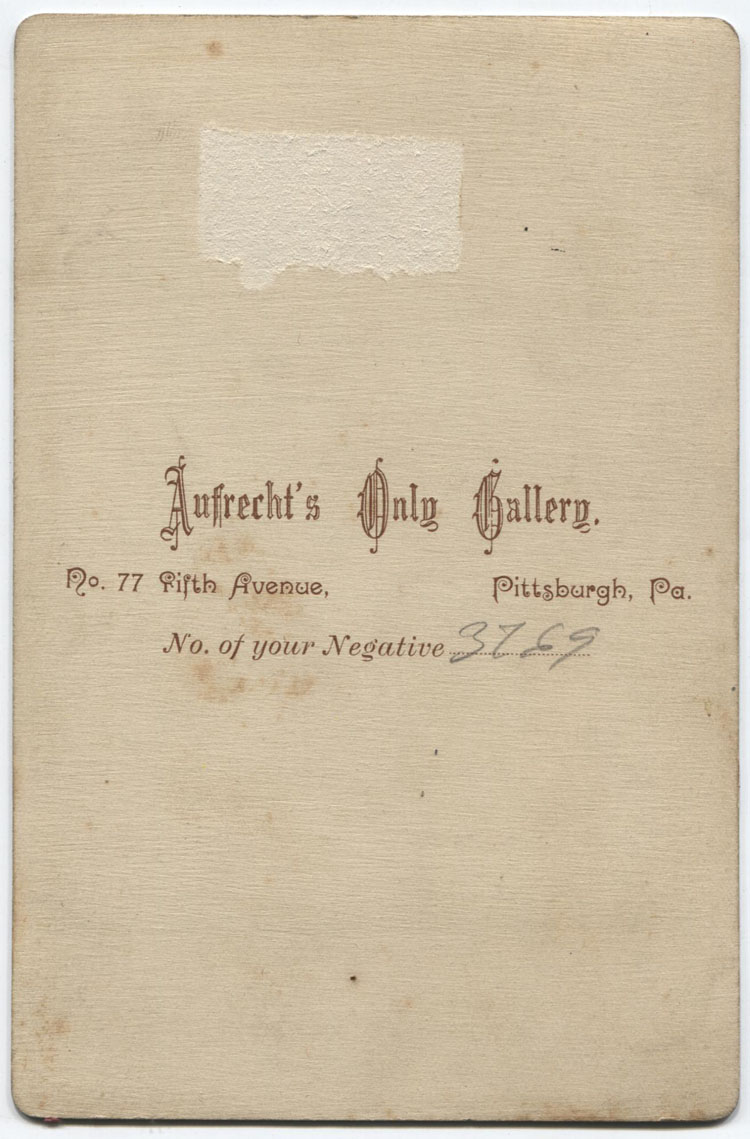 Aufrecht's Only Gallery.
No. 77 Fifth Avenue, Pittsburgh, Pa.
No. of your Negative 3769